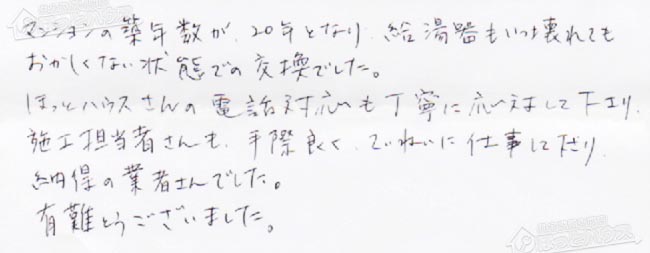 マンションの築年数が、20年となり、給湯器もいつ壊れても
おかしくない状態での交換でした。
ほっとハウスさんの電話対応も丁寧に応えまして下さり、
施工担当者さんも、手際良く、ていねいに仕事して下さり、
納得の業者さんでした。
有難とうございました。